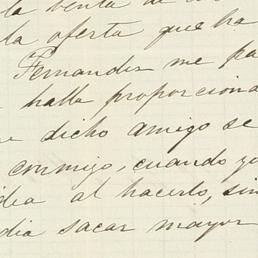 la venta de
la oferta que ha
Fernandez me pa
halla proporciona
e dicho amigo se
conmigo, cuando yo
idea al hacerlo, sin
dia sacar mayor